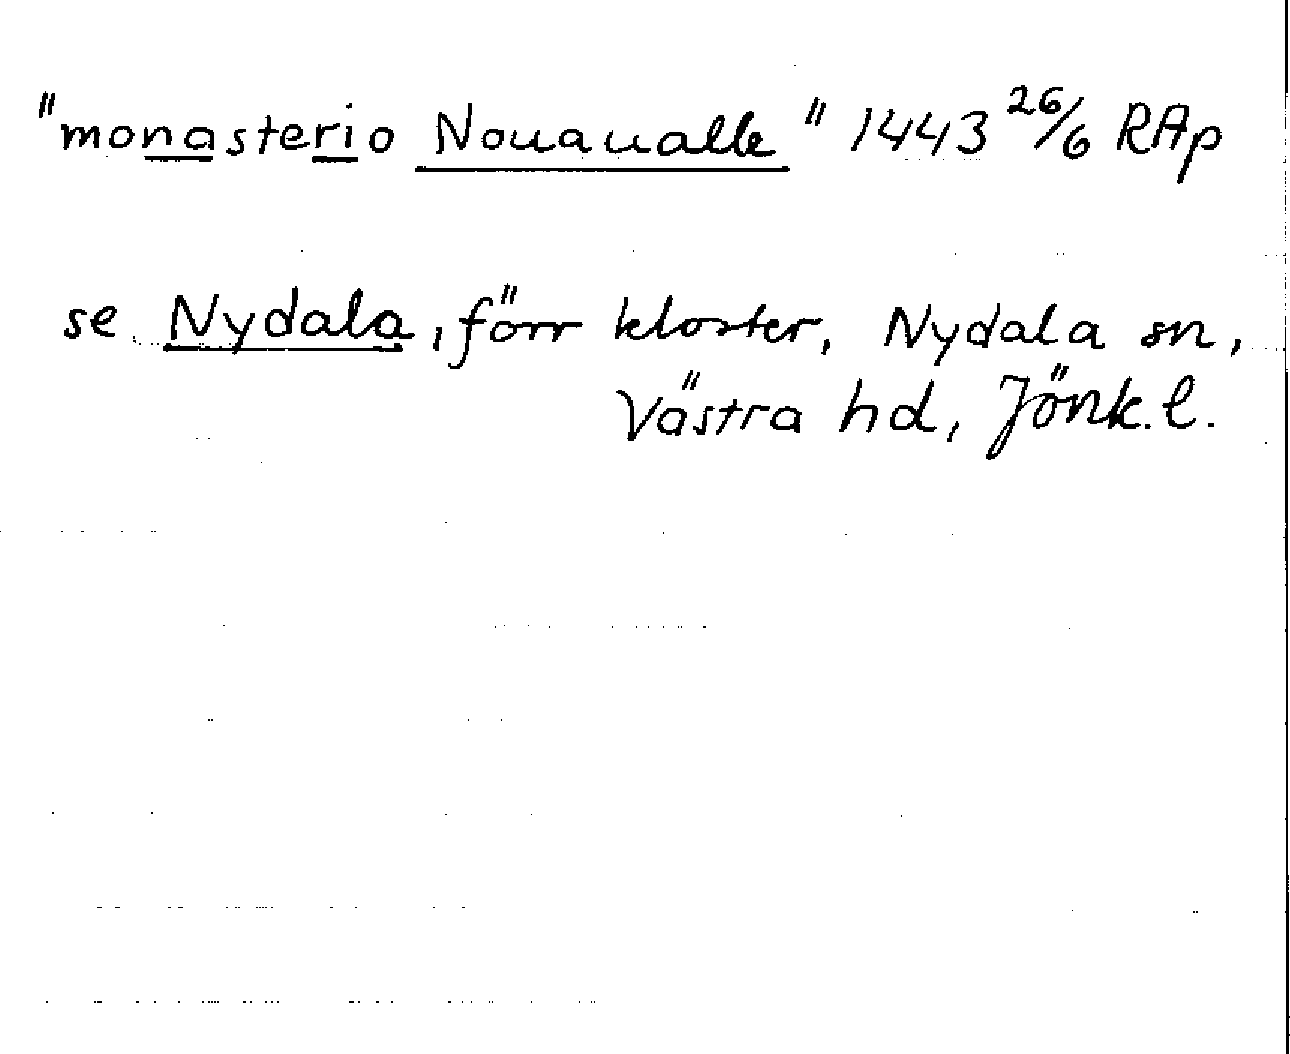 "monasterio Nouaualle" 1443 26/6 RAp
se Nydala, förr kloster, Nydala sn,
Västra hd, Jönk. l.